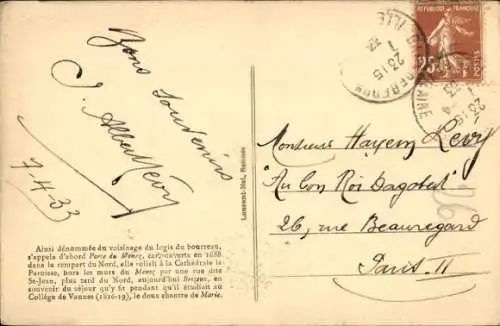 Bons Souvenirs
J. Albert Lévy
7-4-33
Ainsi dénommée du voisinage du logis du bourreau,
s'appela d'abord Porte du Moineq, car ouverte en 1688
dans le rempart du Nord, elle reliait à la Cathédrale la
Paroisse, hors les murs du Mené par une rue dite
St-Jean, plus tard du Nord, aujourd'hui Brizeux, en
souvenir du séjour qu'y fit pendant qu'il étudiait au
Collège de Vannes (1816-19), le doux chantre de Marie.
Laurent-Nel, Rennes
REPUBLIQUE FRANÇAISE
POSTES
7
23 15
33
Monsieur Hayem Levy
"Au Bon Roi Dagobert"
26, rue Beauregard
Paris II